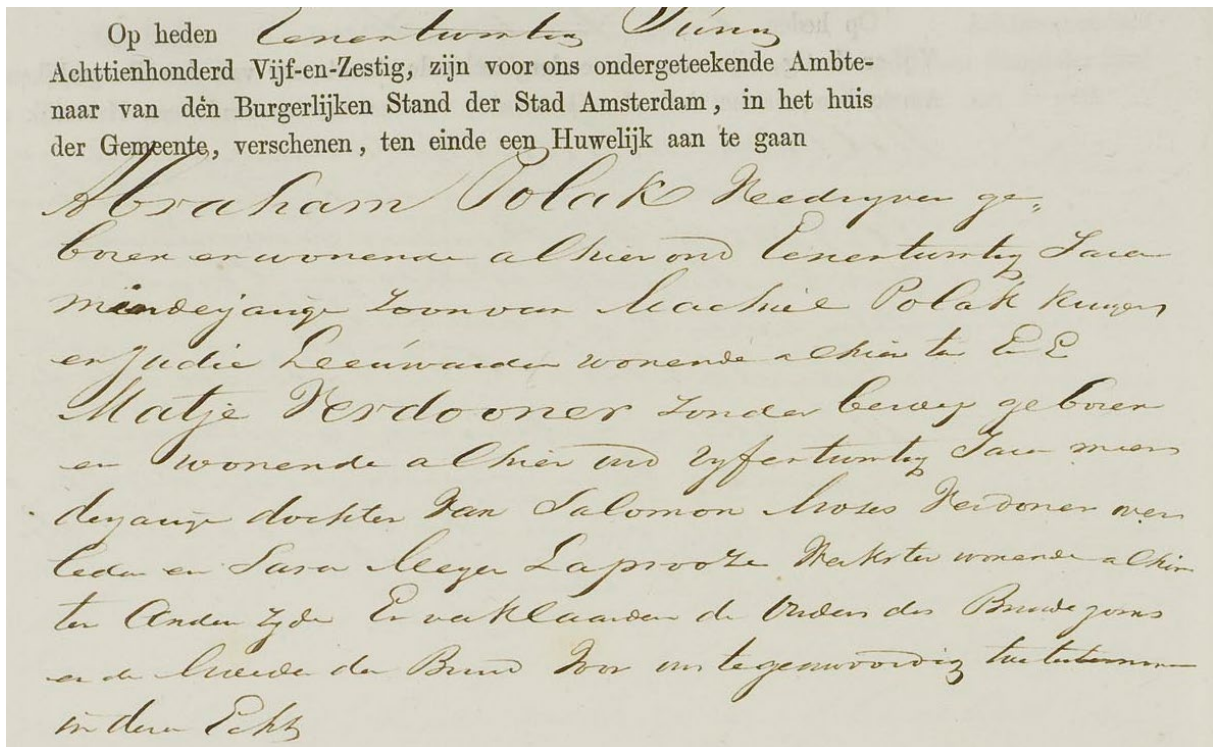 Op heden Eenentwintig Juny
Achttienhonderd Vijf-en-Zestig, zijn voor ons ondergeteekende Ambte-
naar van dén Burgerlijken Stand der Stad Amsterdam, in het huis
der Gemeente, verschenen, ten einde een Huwelijk aan te gaan
Abraham Polak ge„
boren en wonende alhier oud Eenentwintig Jaren
minderjarige zoon van Machiel Polak
en Judic Leeuwarden wonende alhier ter E E
Matje Verdooner zonder beroep geboren
en wonende alhier oud vyfentwintig Jaren meer
derjarige dochter van Salomon Moses Verdoner over
leden en Sara Meyer Laprooze Werkster wonende alhier
ter Andere zyde En verklaarden de Ouders des Bruidegoms
en de Moeder der Bruid voor ons tegenwoordig toetestemmen
in dezen Echt